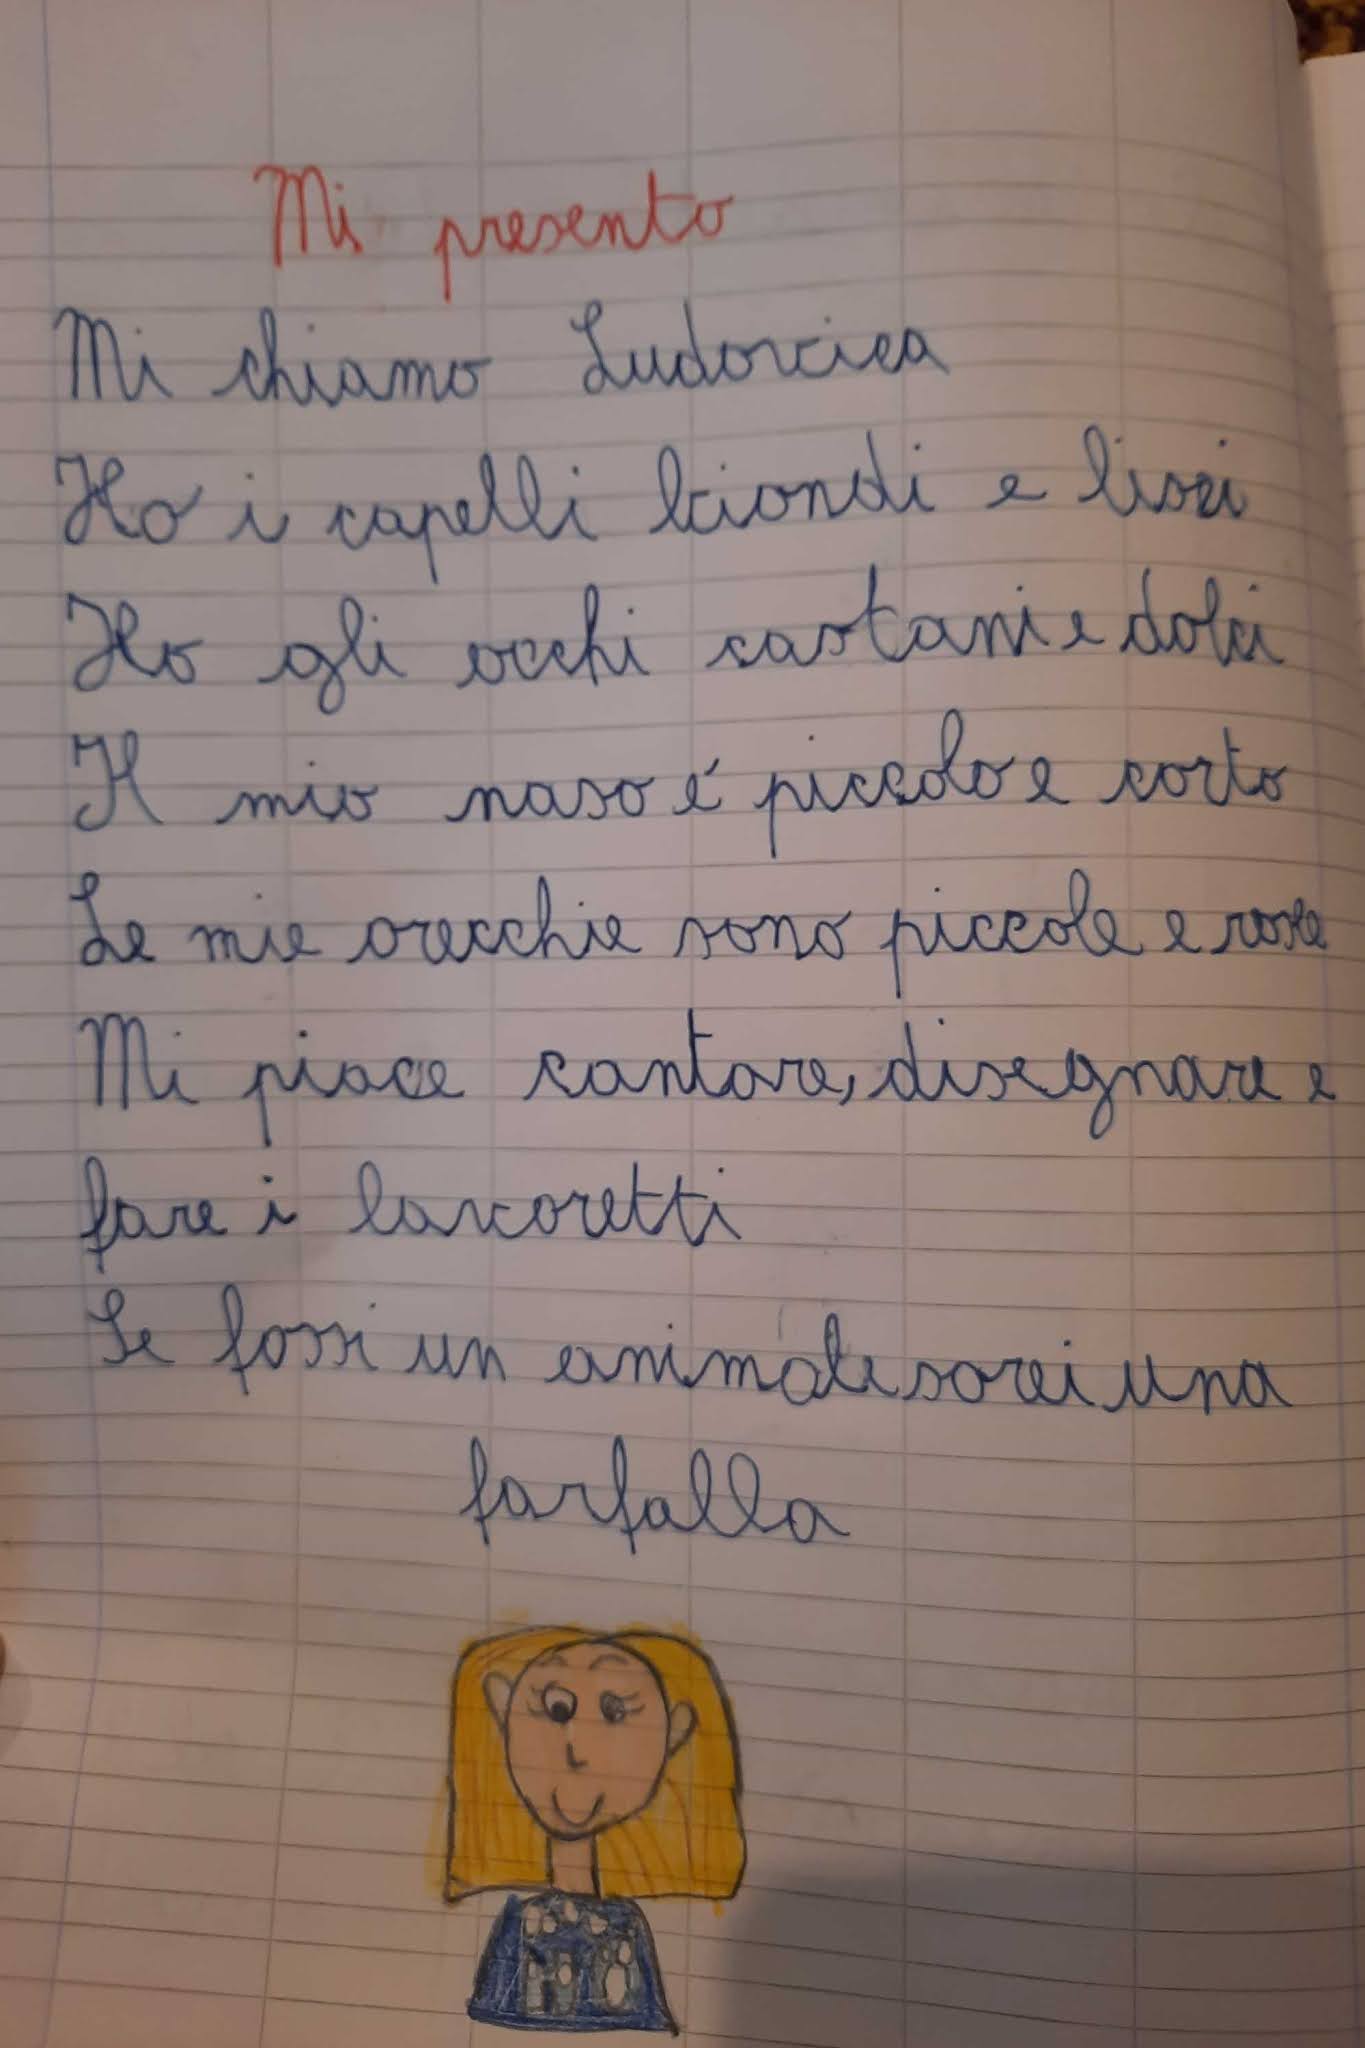 Mi presento
Mi chiamo Ludovica
Ho i capelli biondi e lisci
Ho gli occhi castani e dolci
Il mio naso é piccolo e corto
Le mie orecchie sono piccole e rosee
Mi piace cantare, disegnare e
fare i lavoretti
Se fossi un animale sarei una
farfalla